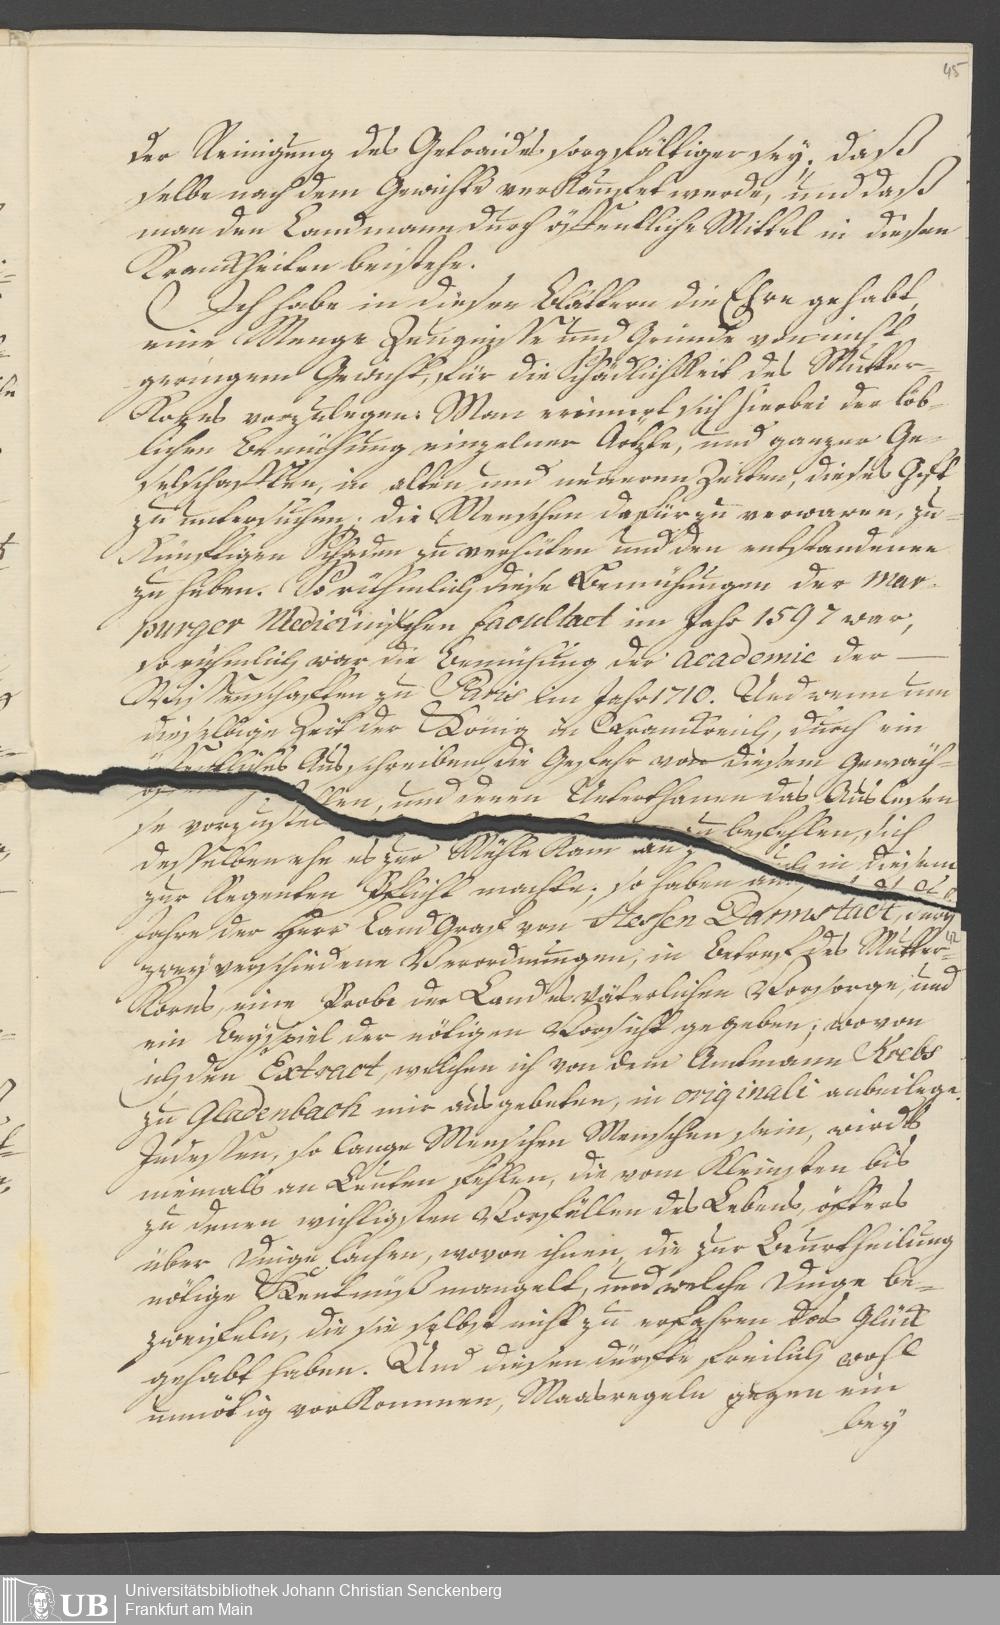 45
der Reinigung des Getraides sorgfältiger sey, daß
selbe nach dem Gewichte verkaufet werde, und daß
man den Landmann durch öffentliche Mittel in diesen
Krankheiten beistehe.
Ich habe in diesen Blättern die Ehre gehabt,
eine Menge Zeugnisse und Gründe von nicht
geringem Gewicht, für die Schädlichkeit des Mutter-
Kornes vorzulegen. Man erinnert sich hierbei der löb-
lichen Bemühung einzelner Aertzte, und ganzer Ge-
selschafften, in alten und neueren Zeiten, dieses Gift
zu untersuchen, die Menschen dafür zu verwaren, zu-
künfftigen Schaden zu verhüten und den entstandenen
zu heben. So rühmlich diese Bemühungen der mar-
purger Medicinischen Facultaet im Jahr 1597 war,
so rühmlich war die Bemühung der Academie der
Wissenschafften zu Paris im Jahr 1710. Und wenn um
dieselbige Zeit der König in Frankreich, durch ein
öffentliches Ausschreiben die Gefahr von diesem Gewäch-
se vorzustellen, und denen Unterthanen das Auslesen
desselben ehe es zur Mühle kam an zu befehlen, sich
zur Regenten Pflicht machte; so haben auch in diesem
Jahre der Herr Land Graf von Hessen Darmstadt, durch
42
zwey verschiedene Verordnungen, in Betref des Mutter-
Korns, eine Probe der Landesväterlichen Vorsorge, und
ein Beyspiel der nötigen Vorsicht gegeben; wovon
ich den Extract, welchen ich von dem Amtmann Krebs
zu Gladenbach mir ausgebeten, in originali anbeilege.
Indessen, so lange Menschen Menschen sein, wirds
niemals an Leuten fehlen, die vom Kleinsten bis
zu denen wichtigsten Vorfällen des Lebens, öffters
über Dinge lachen, wovon ihnen, die zur Beurtheilung
nötige Kentniß mangelt, und welche Dinge be-
zweifeln, die sie selbst nicht zu erfahren das Glück
gehabt haben. Und diesen dürfte freilich wohl
unnötig vorkommen, Maasregeln gegen ein
bey
UB
Universitätsbibliothek Johann Christian Senckenberg
Frankfurt am Main